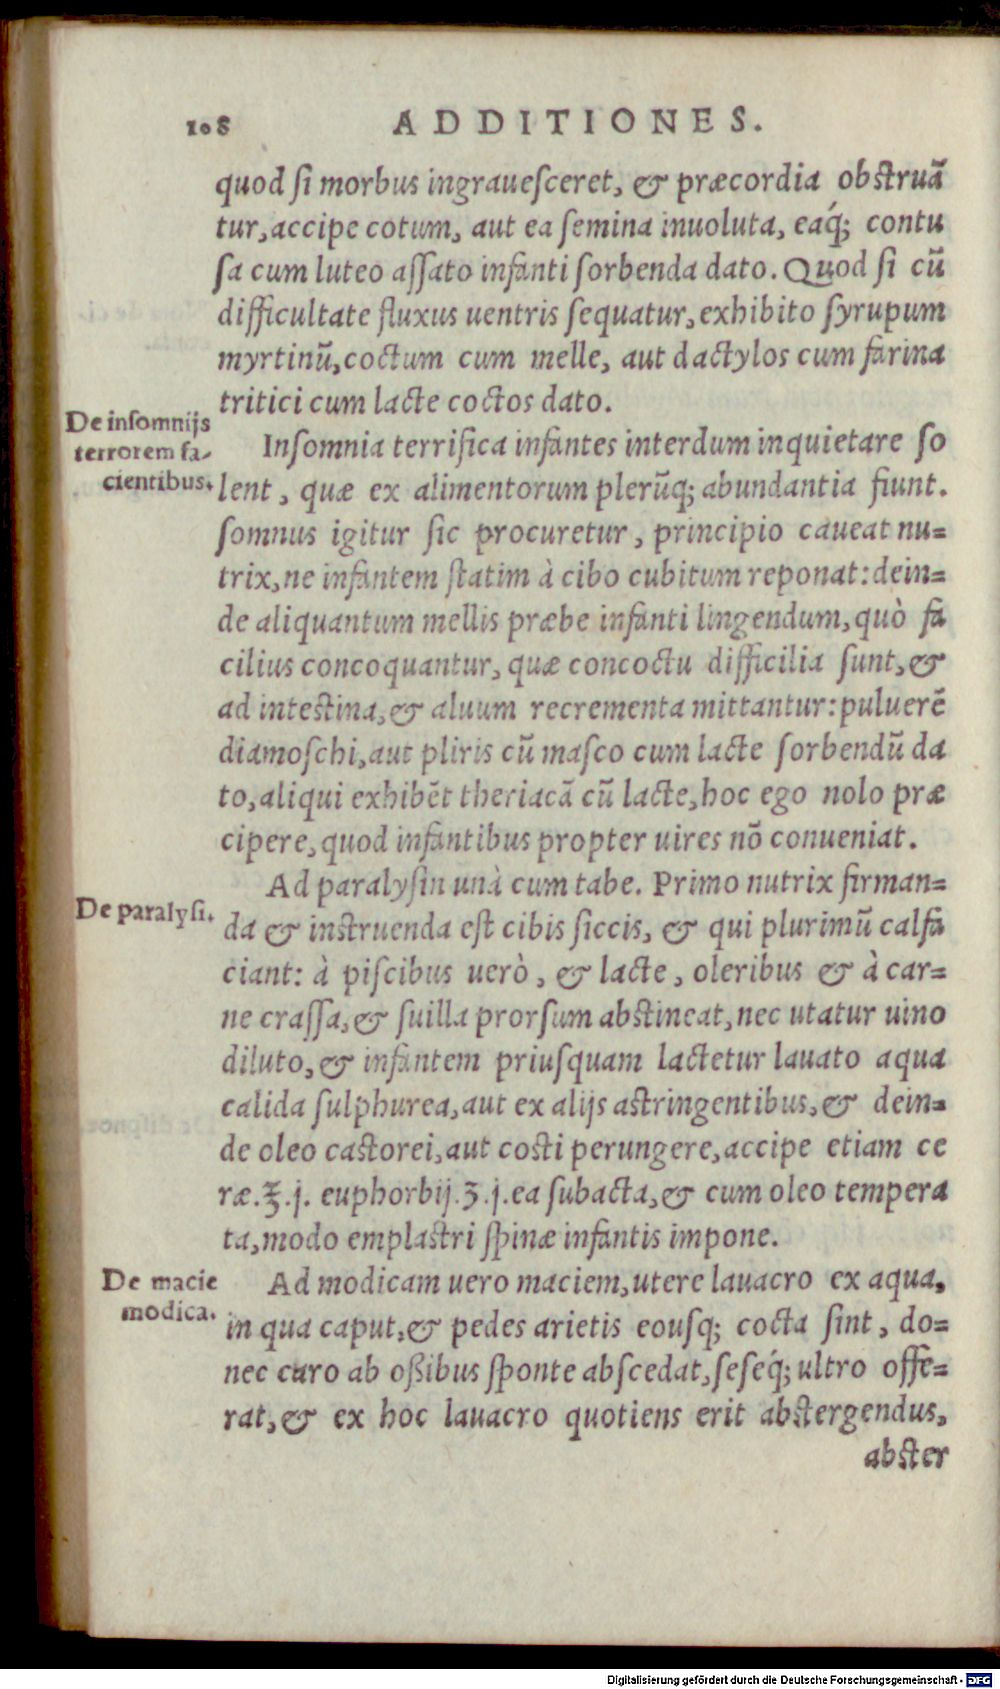 108 ADDITIONES.
quod ſi morbus ingraueſceret, & præcordia obſtruã
tur, accipe cotum, aut ea ſemina inuoluta, eaq́; contu
ſa cum luteo aſſato infanti ſorbenda dato. Quod ſi cũ
difficultate fluxus uentris ſequatur, exhibito ſyrupum
myrtinũ, coctum cum melle, aut dactylos cum farina
tritici cum lacte coctos dato.
De inſomnijs
terrorem fa-
cientibus.
Inſomnia terrifica infantes interdum inquietare ſo
lent, quæ ex alimentorum plerũq; abundantia fiunt.
ſomnus igitur ſic procuretur, principio caueat nu=
trix, ne infantem ſtatim à cibo cubitum reponat: dein=
de aliquantum mellis præbe infanti lingendum, quò fa
cilius concoquantur, quæ concoctu difficilia ſunt, &
ad inteſtina, & aluum recrementa mittantur: puluerẽ
diamoſchi, aut pliris cũ maſco cum lacte ſorbendũ da
to, aliqui exhibẽt theriacã cũ lacte, hoc ego nolo præ
cipere, quod infantibus propter uires nõ conueniat.
De paralyſi.
Ad paralyſin unà cum tabe. Primo nutrix firman=
da & inſtruenda eſt cibis ſiccis, & qui plurimũ calfa
ciant: à piſcibus uerò, & lacte, oleribus & à car=
ne craſſa, & ſuilla prorſum abſtineat, nec utatur uino
diluto, & infantem priuſquam lactetur lauato aqua
calida ſulphurea, aut ex alijs aſtringentibus, & dein=
de oleo caſtorei, aut coſti perungere, accipe etiam ce
ræ. ℥. j. euphorbij. ʒ. j. ea ſubacta, & cum oleo tempera
ta, modo emplaſtri ſpinæ infantis impone.
De macie
modica.
Ad modicam uero maciem, utere lauacro ex aqua,
in qua caput, & pedes arietis eouſq; cocta ſint, do=
nec caro ab oßibus ſponte abſcedat, ſeſeq́; ultro offe=
rat, & ex hoc lauacro quotiens erit abſtergendus,
abſter
Digitalisierung gefördert durch die Deutsche Forschungsgemeinschaft - DFG